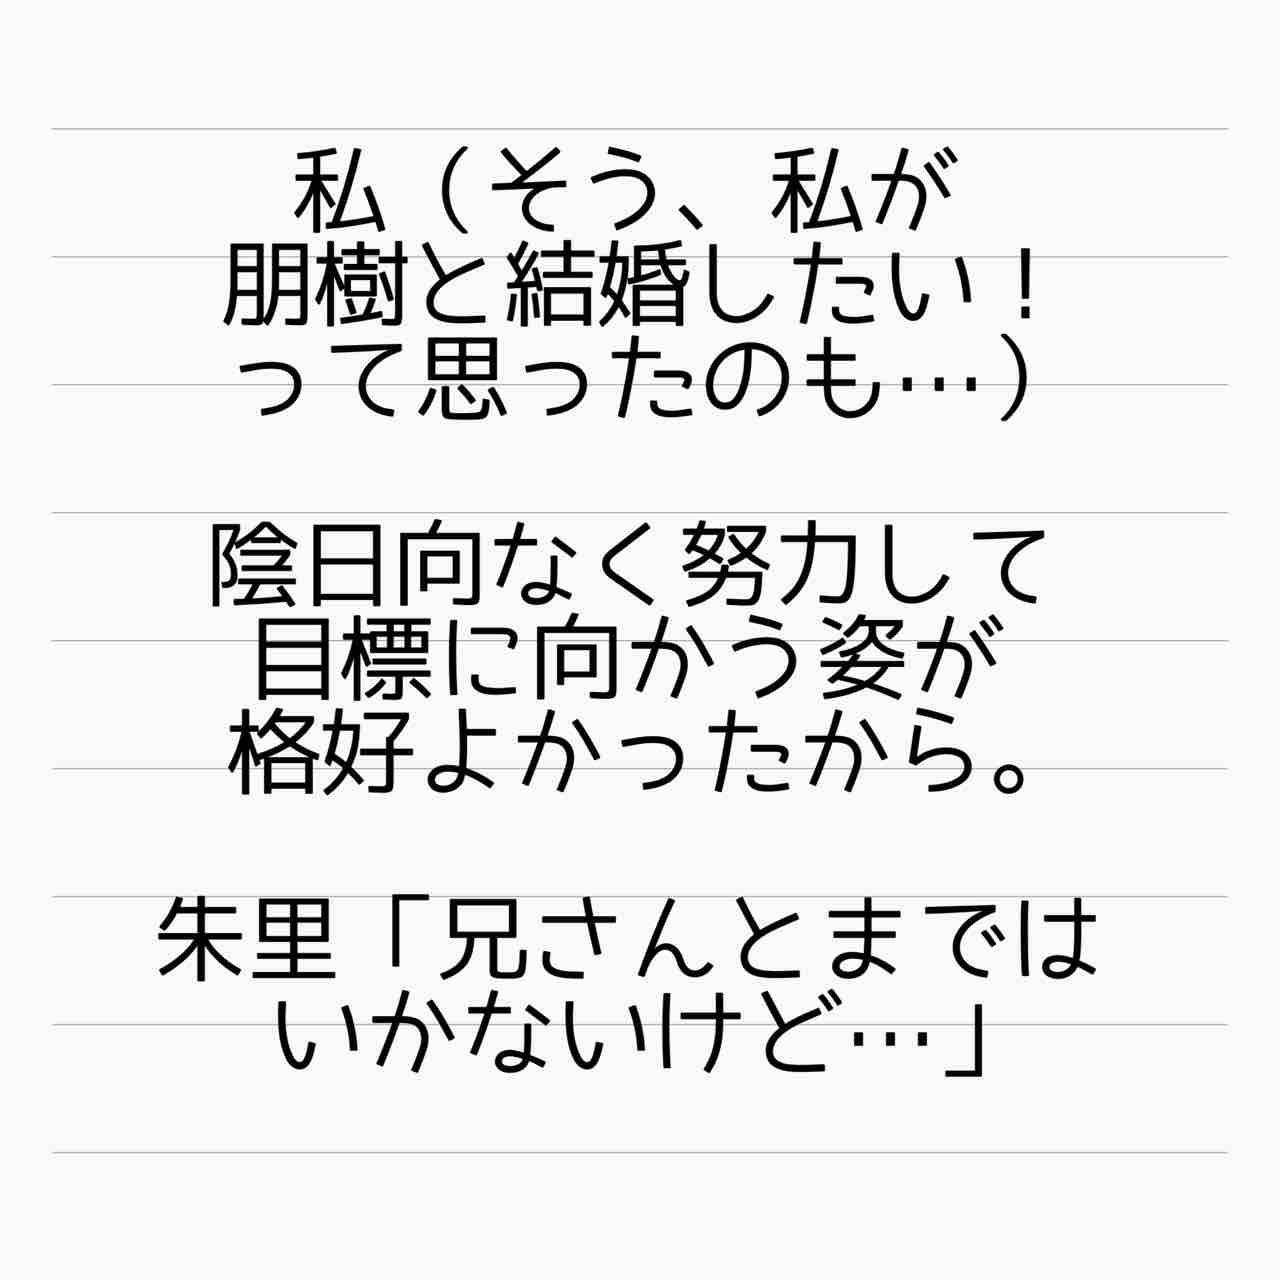 私（そう、私が
朋樹と結婚したい！
って思ったのも…）
陰日向なく努力して
目標に向かう姿が
格好よかったから。
朱里「兄さんとまでは
いかないけど…」